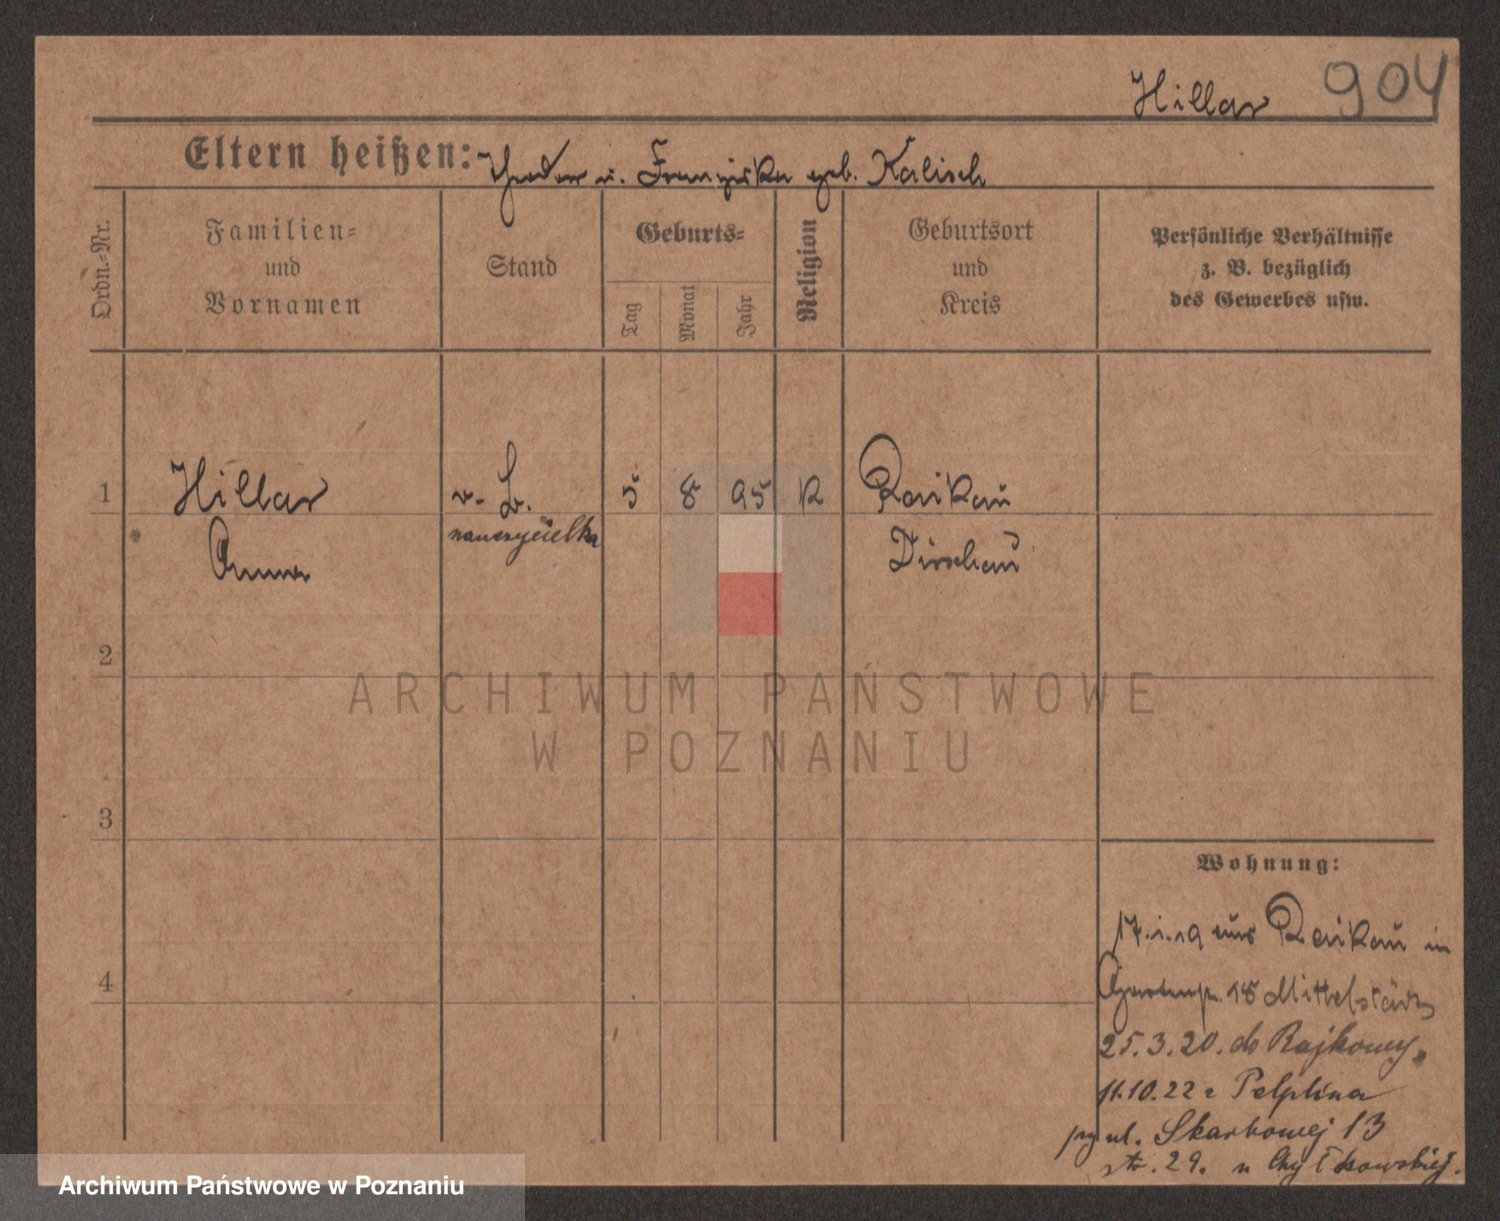 Hillar 904
Eltern heißen: Theodor u. Franziska geb. Kalisch
Ordn.-Nr.
Familien=
und
Vornamen
Stand
Geburts=
Tag
Monat
Jahr
Religion
Geburtsort
und
Kreis
Persönliche Verhältnisse
z. B. bezüglich
des Gewerbes usw.
1 Hillar v. L. 5 8 95 K Raikau
Anna nauczycielka Dirschau
2
3
4
ARCHIWUM PAŃSTWOWE
W POZNANIU
Wohnung:
17.1.19 aus Raikau in
18 Mittelstürz
25.3.20. do Rajkowy.
11.10.22 z Pelplina
przy ul. Skarbowej 13
str. 29. u
Archiwum Państwowe w Poznaniu